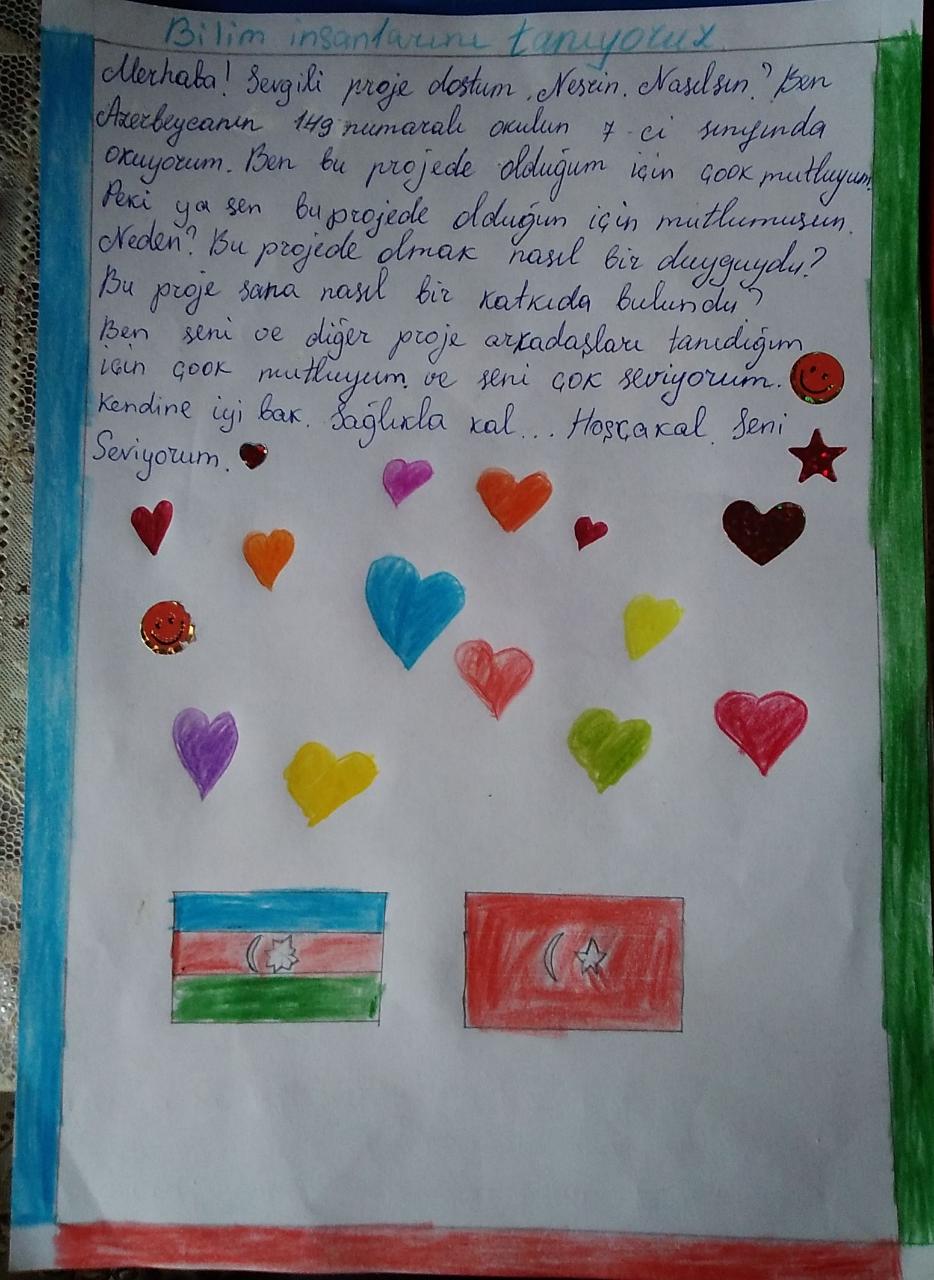 Bilim insanlarını tanıyoruz
Merhaba! Sevgili proje dostum, Nesrin. Nasılsın? Ben
Azerbeycanın 149 numaralı okulun 7-ci sınıfında
okuyorum. Ben bu projede olduğum için çook mutluyum.
Peki ya sen bu projede olduğun için mutlumusun.
Neden? Bu projede olmak nasıl bir duyguydu?
Bu proje sana nasıl bir katkıda bulundu?
Ben seni ve diğer proje arkadaşları tanıdığım
için çook mutluyum ve seni çok seviyorum.
Kendine iyi bak. Sağlıkla kal... Hoşçakal. Seni
Seviyorum.